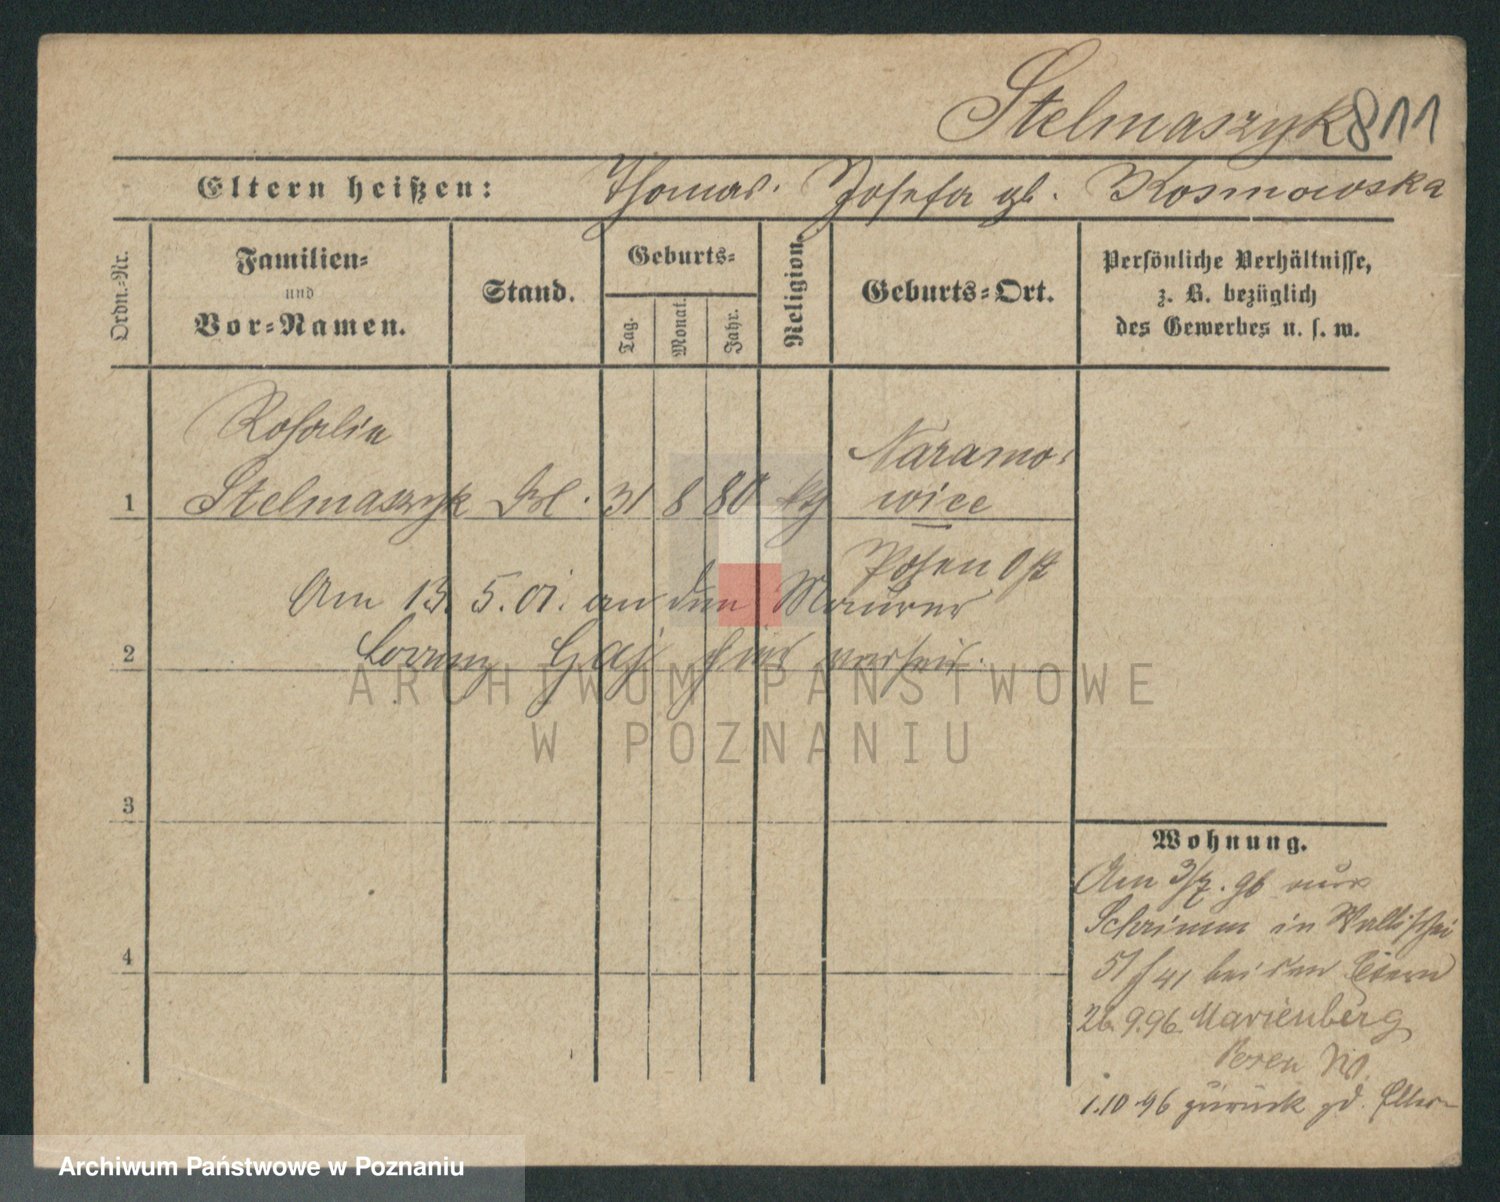 Stelmaszyk 811
Eltern heißen: Thomas. Josefa gb. Kosmowska
Ordn.-Nr.
Familien-
und
Vor-Namen.
Stand.
Geburts-
Tag.
Monat.
Jahr.
Religion.
Geburts-Ort.
Persönliche Verhältnisse,
z. B. bezüglich
des Gewerbes u. s. w.
Rosalie
Naramo-
1 Stelmaszyk 31 8 80 kth wice
Posen Ost
Am 13. 5. 01. an den Maurer
2 Gaj hier verheir.
3
4
Wohnung.
Am 3/7. 96 aus
Schrimm in Wallischei
51 bei den Eltern
26. 9. 96. Marienberg
Posen W.
1. 10 96 zurück zd. Eltern
ARCHIWUM PAŃSTWOWE
W POZNANIU
Archiwum Państwowe w Poznaniu